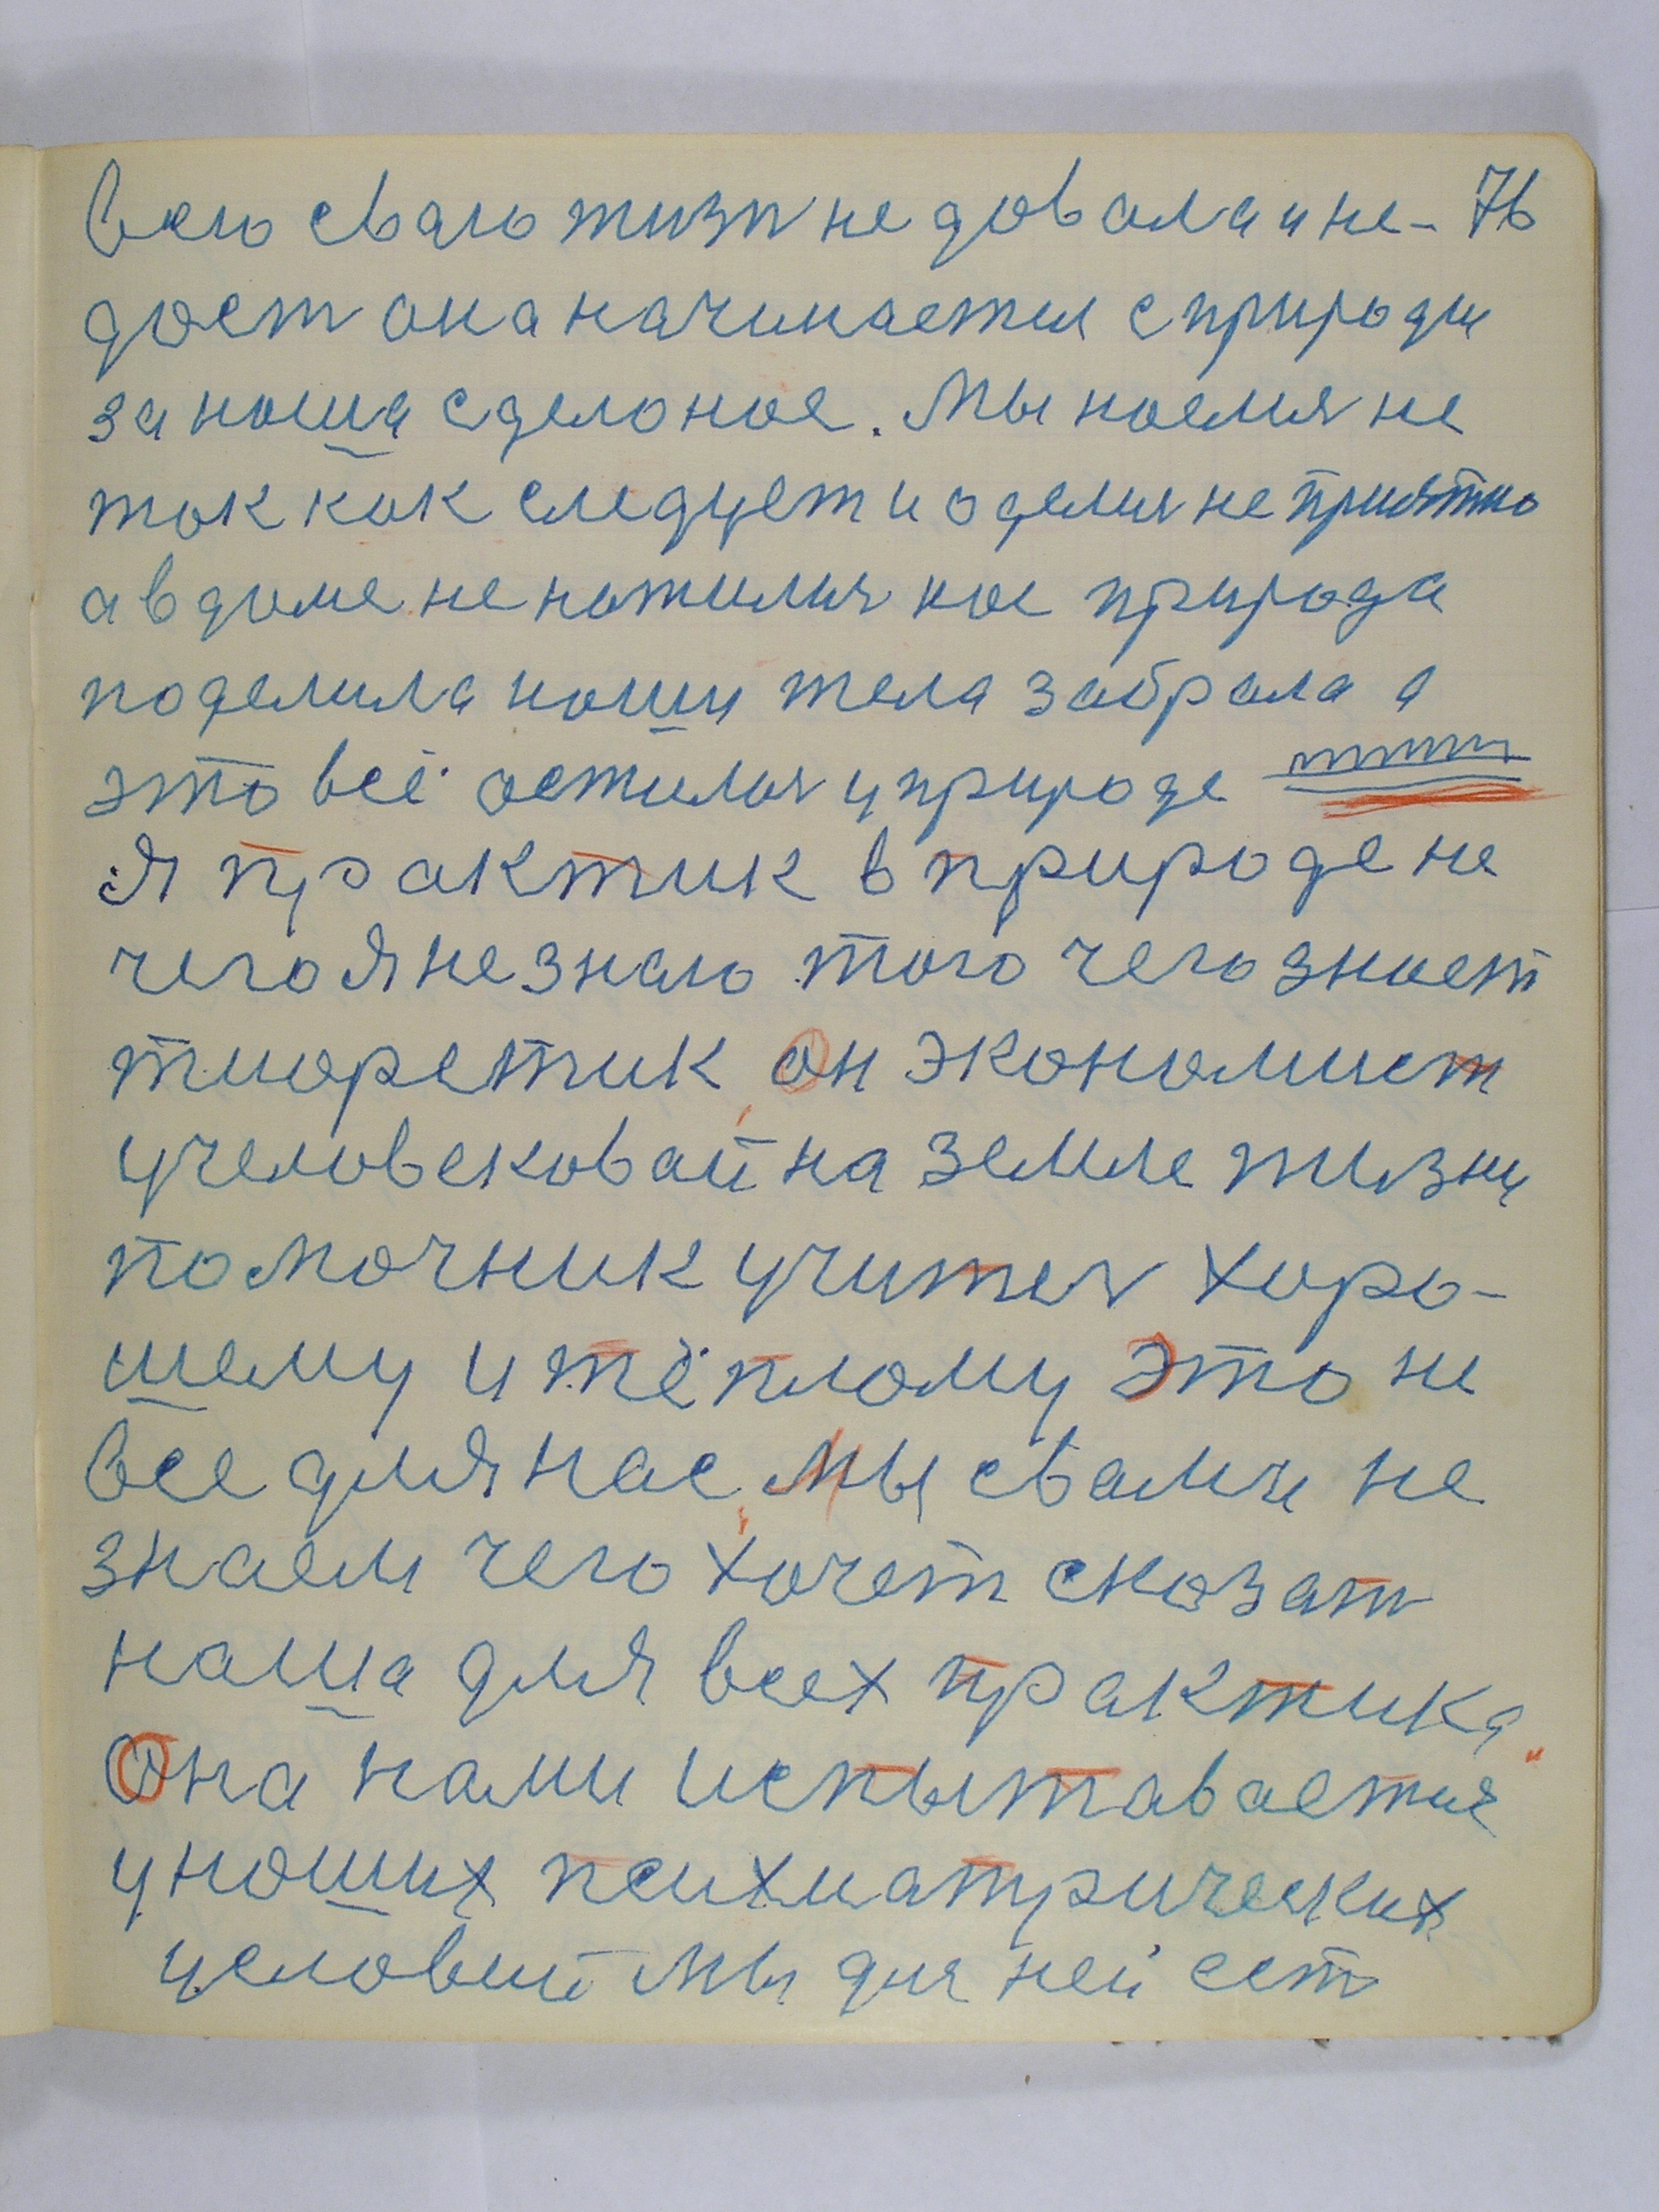 всю сваю жизн не довала и не- 76
доет она начинается с природи
за ноша сделоное. Мы ноелися не
ток как следует и оделися не приятно
а в доме не нажилися нос природа
поделила ноши тела забрала а
это всё остилося у природе
Я практик в природе не
чего я не знаю того чего зноет
тиоретик, он экономист
у человековай на земле жизни
помочник учится хоро-
шему и тёплому это не
все для нас, мы свами не
знаем чего хочет сказат
наша для всех практика
Она нами испытавается
у ноших психиатрических
условий мы для ней ест